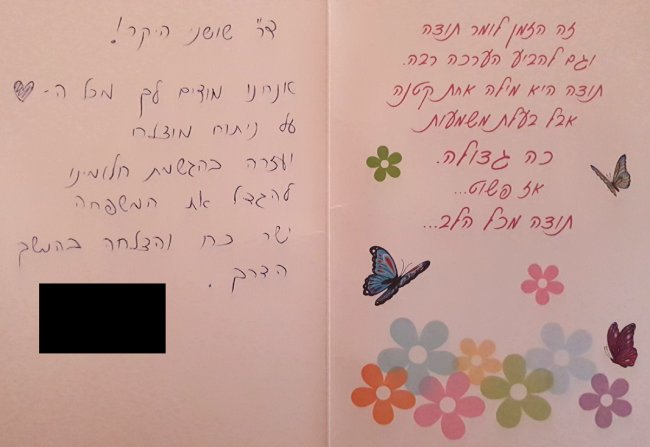 דר' שושני היקר!
אנחנו מודים לך מכל ה-♥
על ניתוח מוצלח
ועזרה בהגשמת חלומינו
להגדיל את המשפחה
ישר כח והצלחה בהמשך
הדרך.
זה הזמן לומר תודה
וגם להביע הערכה רבה.
תודה היא מילה אחת קטנה
אבל בעלת משמעות
כה גדולה.
אז פשוט...
תודה מכל הלב...